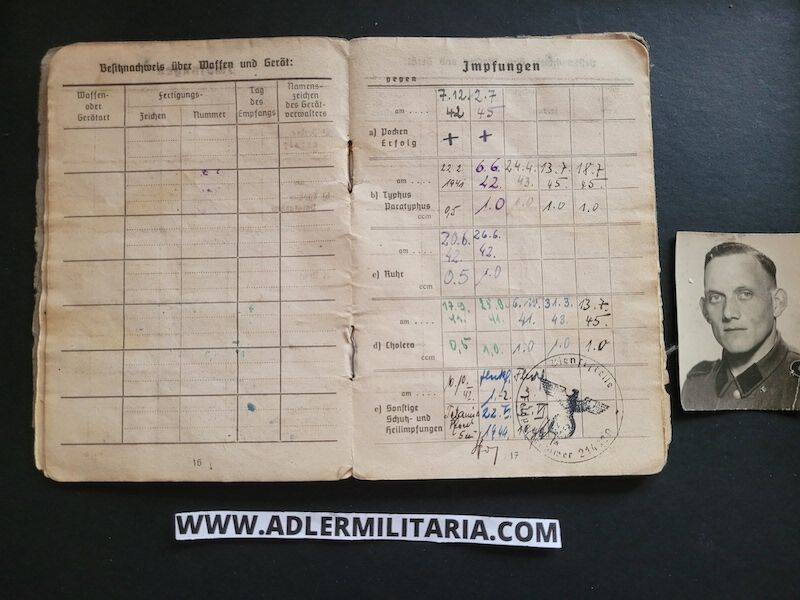 Besitznachweis über Waffen und Gerät:
Waffen- oder Gerätart
Fertigungs-
Zeichen
Nummer
Tag des Empfangs
Namens- zeichen des Gerät- verwalters
16
Impfungen
gegen
7.12. 2.7
am .... 42 45
a) Pocken
Erfolg + +
22.2. 6.6. 24.4. 13.7. 18.7
am .... 1941 42. 43. 45. 45.
b) Typhus
Paratyphus 0,5 1.0 1.0 1.0 1.0
ccm
20.6. 26.6.
am .... 42. 42.
c) Ruhr 0.5 1.0
ccm
31.3. 13.7.
am .... 41. 43. 45.
d) Cholera 0,5 1,0 1.0 1.0 1.0
ccm
am ....
e) Sonstige
Schutz- und 22.
Heilimpfungen 1944
Dienststelle
17
WWW.ADLERMILITARIA.COM